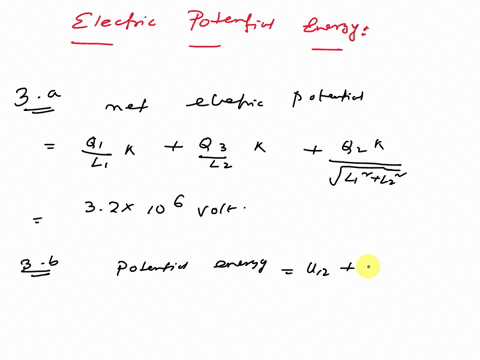 Electric Potential Energy:
3.a net elecric potential
= Q1/L1 K + Q3/L2 K + Q2 K/√(L1² + L2²)
= 3.2 × 10⁶ volt.
3.b Potential energy = U12 +